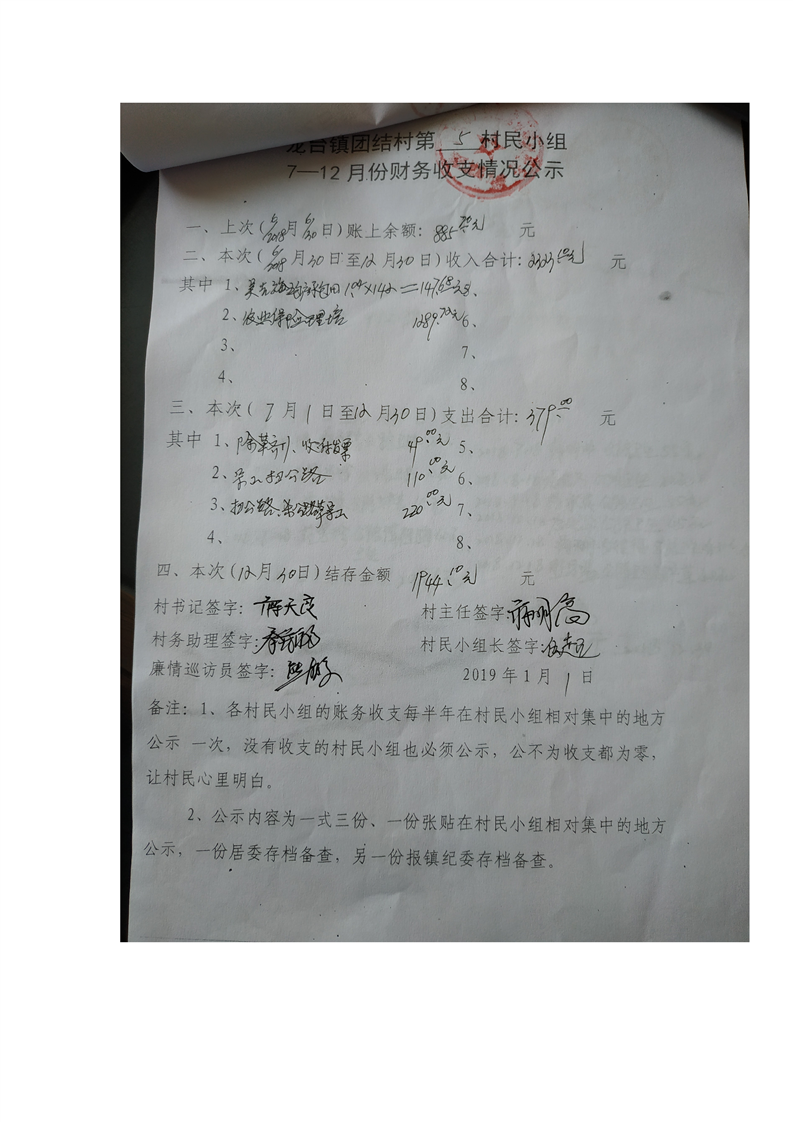 龙台镇团结村第 5 村民小组
7—12月份财务收支情况公示
一、上次(2018月6/30日)账上余额: 885.70元 元
二、本次( 月30日至12月30日)收入合计: 元
其中 1、 1.04×142=147.68元 5、
2、农业保险理培 1289.72元 6、
3、 7、
4、 8、
三、本次( 7月1日至12月30日)支出合计: 379.00 元
其中 1、除草剂、收 49.00元 5、
2、 扫公路 110.00元 6、
3、扫公路、 220.00元 7、
4、 8、
四、本次(12月30日)结存金额 1944.10元 元
村书记签字: 村主任签字:
村务助理签字: 村民小组长签字:
廉情巡访员签字: 2019年1月1日
备注: 1、各村民小组的账务收支每半年在村民小组相对集中的地方
公示 一次,没有收支的村民小组也必须公示,公不为收支都为零,
让村民心里明白。
2、公示内容为一式三份、一份张贴在村民小组相对集中的地方
公示,一份居委存档备查,另一份报镇纪委存档备查。